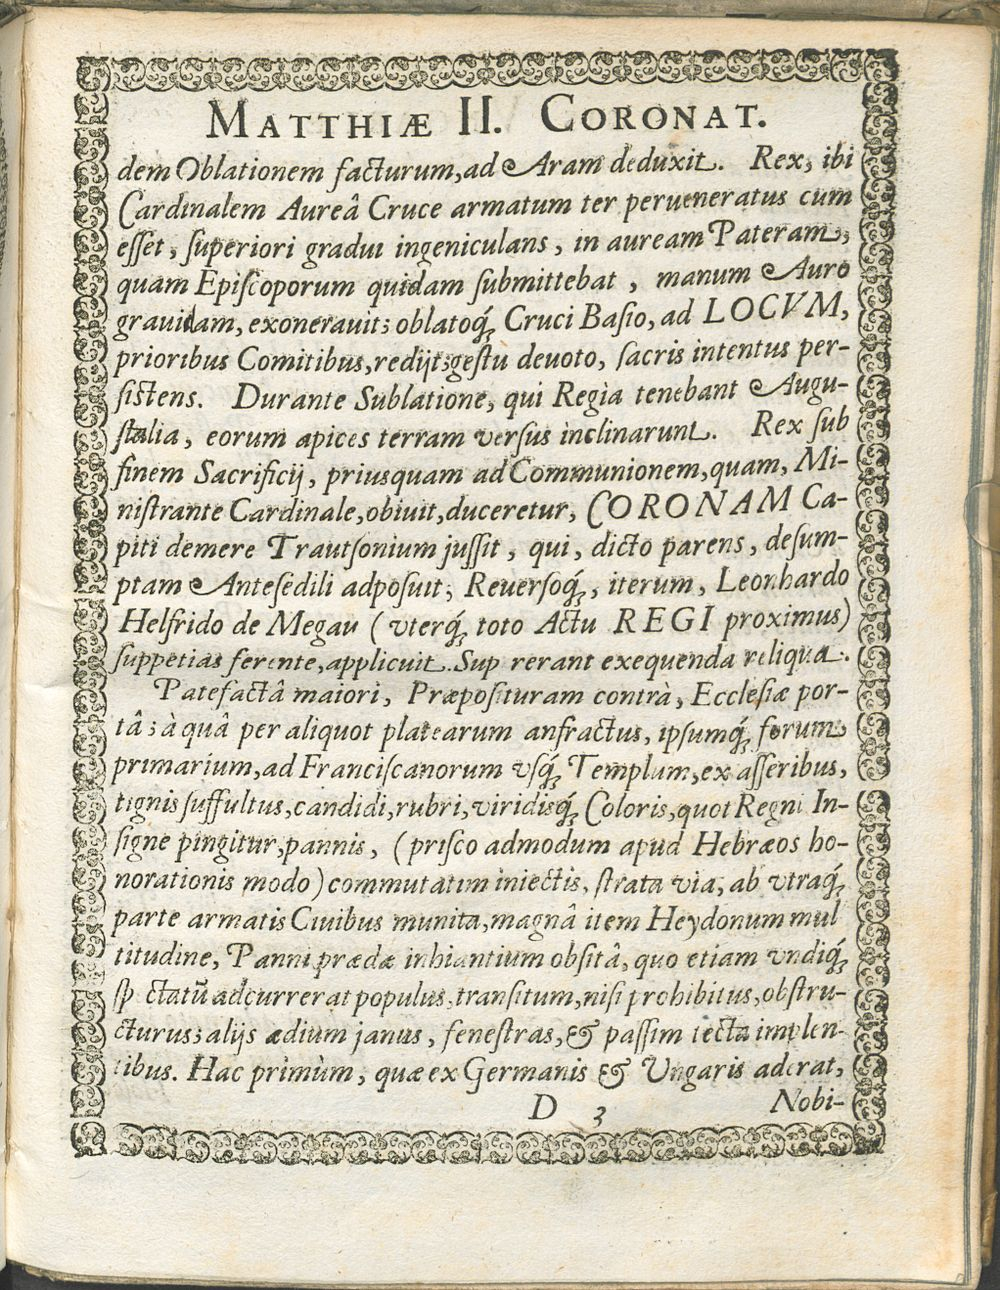 MATTHIÆ II. CORONAT.
dem Oblationem facturum, ad Aram deduxit. Rex, ibi
Cardinalem Aureâ Cruce armatum ter perueneratus cum
esset, superiori gradui ingeniculans, in auream Pateram,
quam Episcoporum quidam submittebat, manum Auro
grauidam, exonerauit; oblatoq́; Cruci Basio, ad LOCVM,
prioribus Comitibus, redijt; gestu deuoto, sacris intentus per-
sistens. Durante Sublatione, qui Regia tenebant Augu-
stalia, eorum apices terram versus inclinarunt. Rex sub
finem Sacrificij, priusquam ad Communionem, quam, Mi-
nistrante Cardinale, obiuit, duceretur, CORONAM Ca-
piti demere Trautsonium jussit, qui, dicto parens, desum-
ptam Antesedili adposuit; Reuersoq́;, iterum, Leonhardo
Helfrido de Megau (vterq́; toto Actu REGI proximus)
suppetias ferente, applicuit. Sup rerant exequenda reliqua.
Patefactâ maiori, Præposituram contrà, Ecclesiæ por-
tâ; à quâ per aliquot platearum anfractus, ipsumq́; forum
primarium, ad Franciscanorum vsq́; Templum, ex asseribus,
tignis suffultus, candidi, rubri, viridisq́; Coloris, quot Regni In-
signe pingitur, pannis, (prisco admodum apud Hebræos ho-
norationis modo) commutatim iniectis, strata via, ab vtraq́;
parte armatis Ciuibus munita, magnâ item Heydonum mul
titudine, Panni prædæ inhiantium obsitâ, quo etiam vndiq́;
sp ctatũ adcurrerat populus, transitum, nisi prohibitus, obstru-
cturus; alijs ædium januas, fenestras, & passim tecta implen-
tibus. Hac primùm, quæ ex Germanis & Ungaris aderat,
D 3 Nobi-